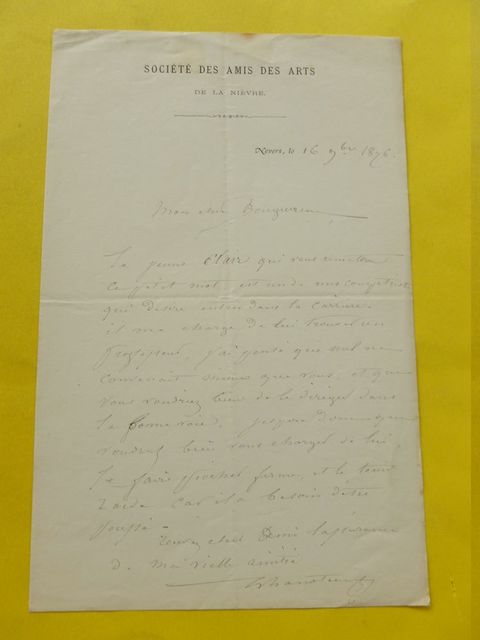 SOCIÉTÉ DES AMIS DES ARTS
DE LA NIÈVRE.
Nevers, le 16 9bre 1876.
Mon cher
Le jeune Clair qui vous remettra
ce petit mot, est un de nos compatriotes
qui désire entrer dans la carrière.
il me charge de lui trouver un
professeur, j'ai pensé que nul ne
convenait mieux que vous, et que
vous voudrez bien le diriger dans
la bonne voie. j'espère donc que
voudrez bien vous charger de lui,
le faire piocher ferme, et le tenir
car il a besoin d'être
poussé -
cher ami l'assurance
de ma vielle amitié